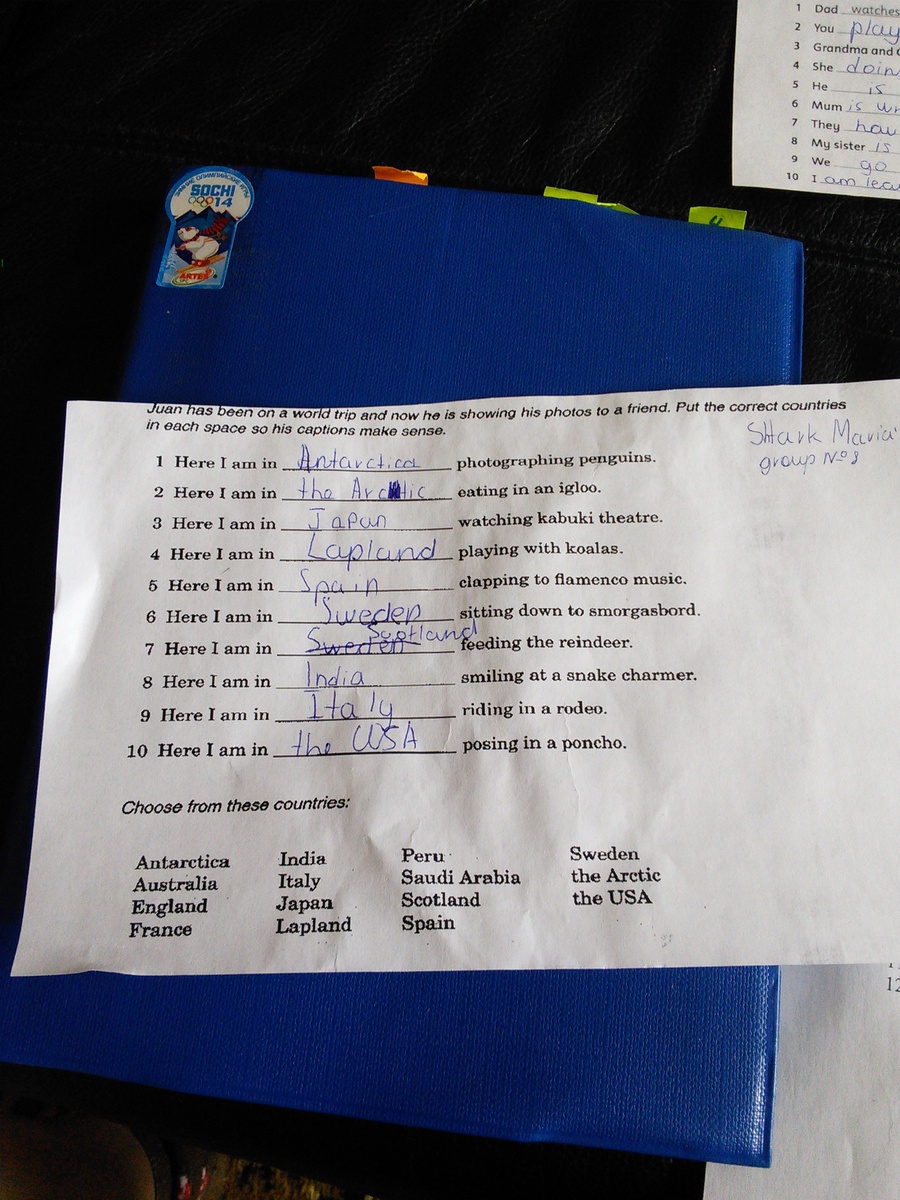 1 Dad watches
2 You play
3 Grandma and
4 She doin
5 He is
6 Mum is wr
7 They hav
8 My sister is
9 We go
10 I am lea
ЗИМНИЕ ОЛИМПИЙСКИЕ ИГРЫ
SOCHI
2014
ARTES
4
Juan has been on a world trip and now he is showing his photos to a friend. Put the correct countries
in each space so his captions make sense.
Shark Maria
group №8
1 Here I am in Antarctica photographing penguins.
2 Here I am in the Arctic eating in an igloo.
3 Here I am in Japan watching kabuki theatre.
4 Here I am in Lapland playing with koalas.
5 Here I am in Spain clapping to flamenco music.
6 Here I am in Sweden sitting down to smorgasbord.
7 Here I am in Sweden Scotland feeding the reindeer.
8 Here I am in India smiling at a snake charmer.
9 Here I am in Italy riding in a rodeo.
10 Here I am in the USA posing in a poncho.
Choose from these countries:
Antarctica India Peru Sweden
Australia Italy Saudi Arabia the Arctic
England Japan Scotland the USA
France Lapland Spain
12